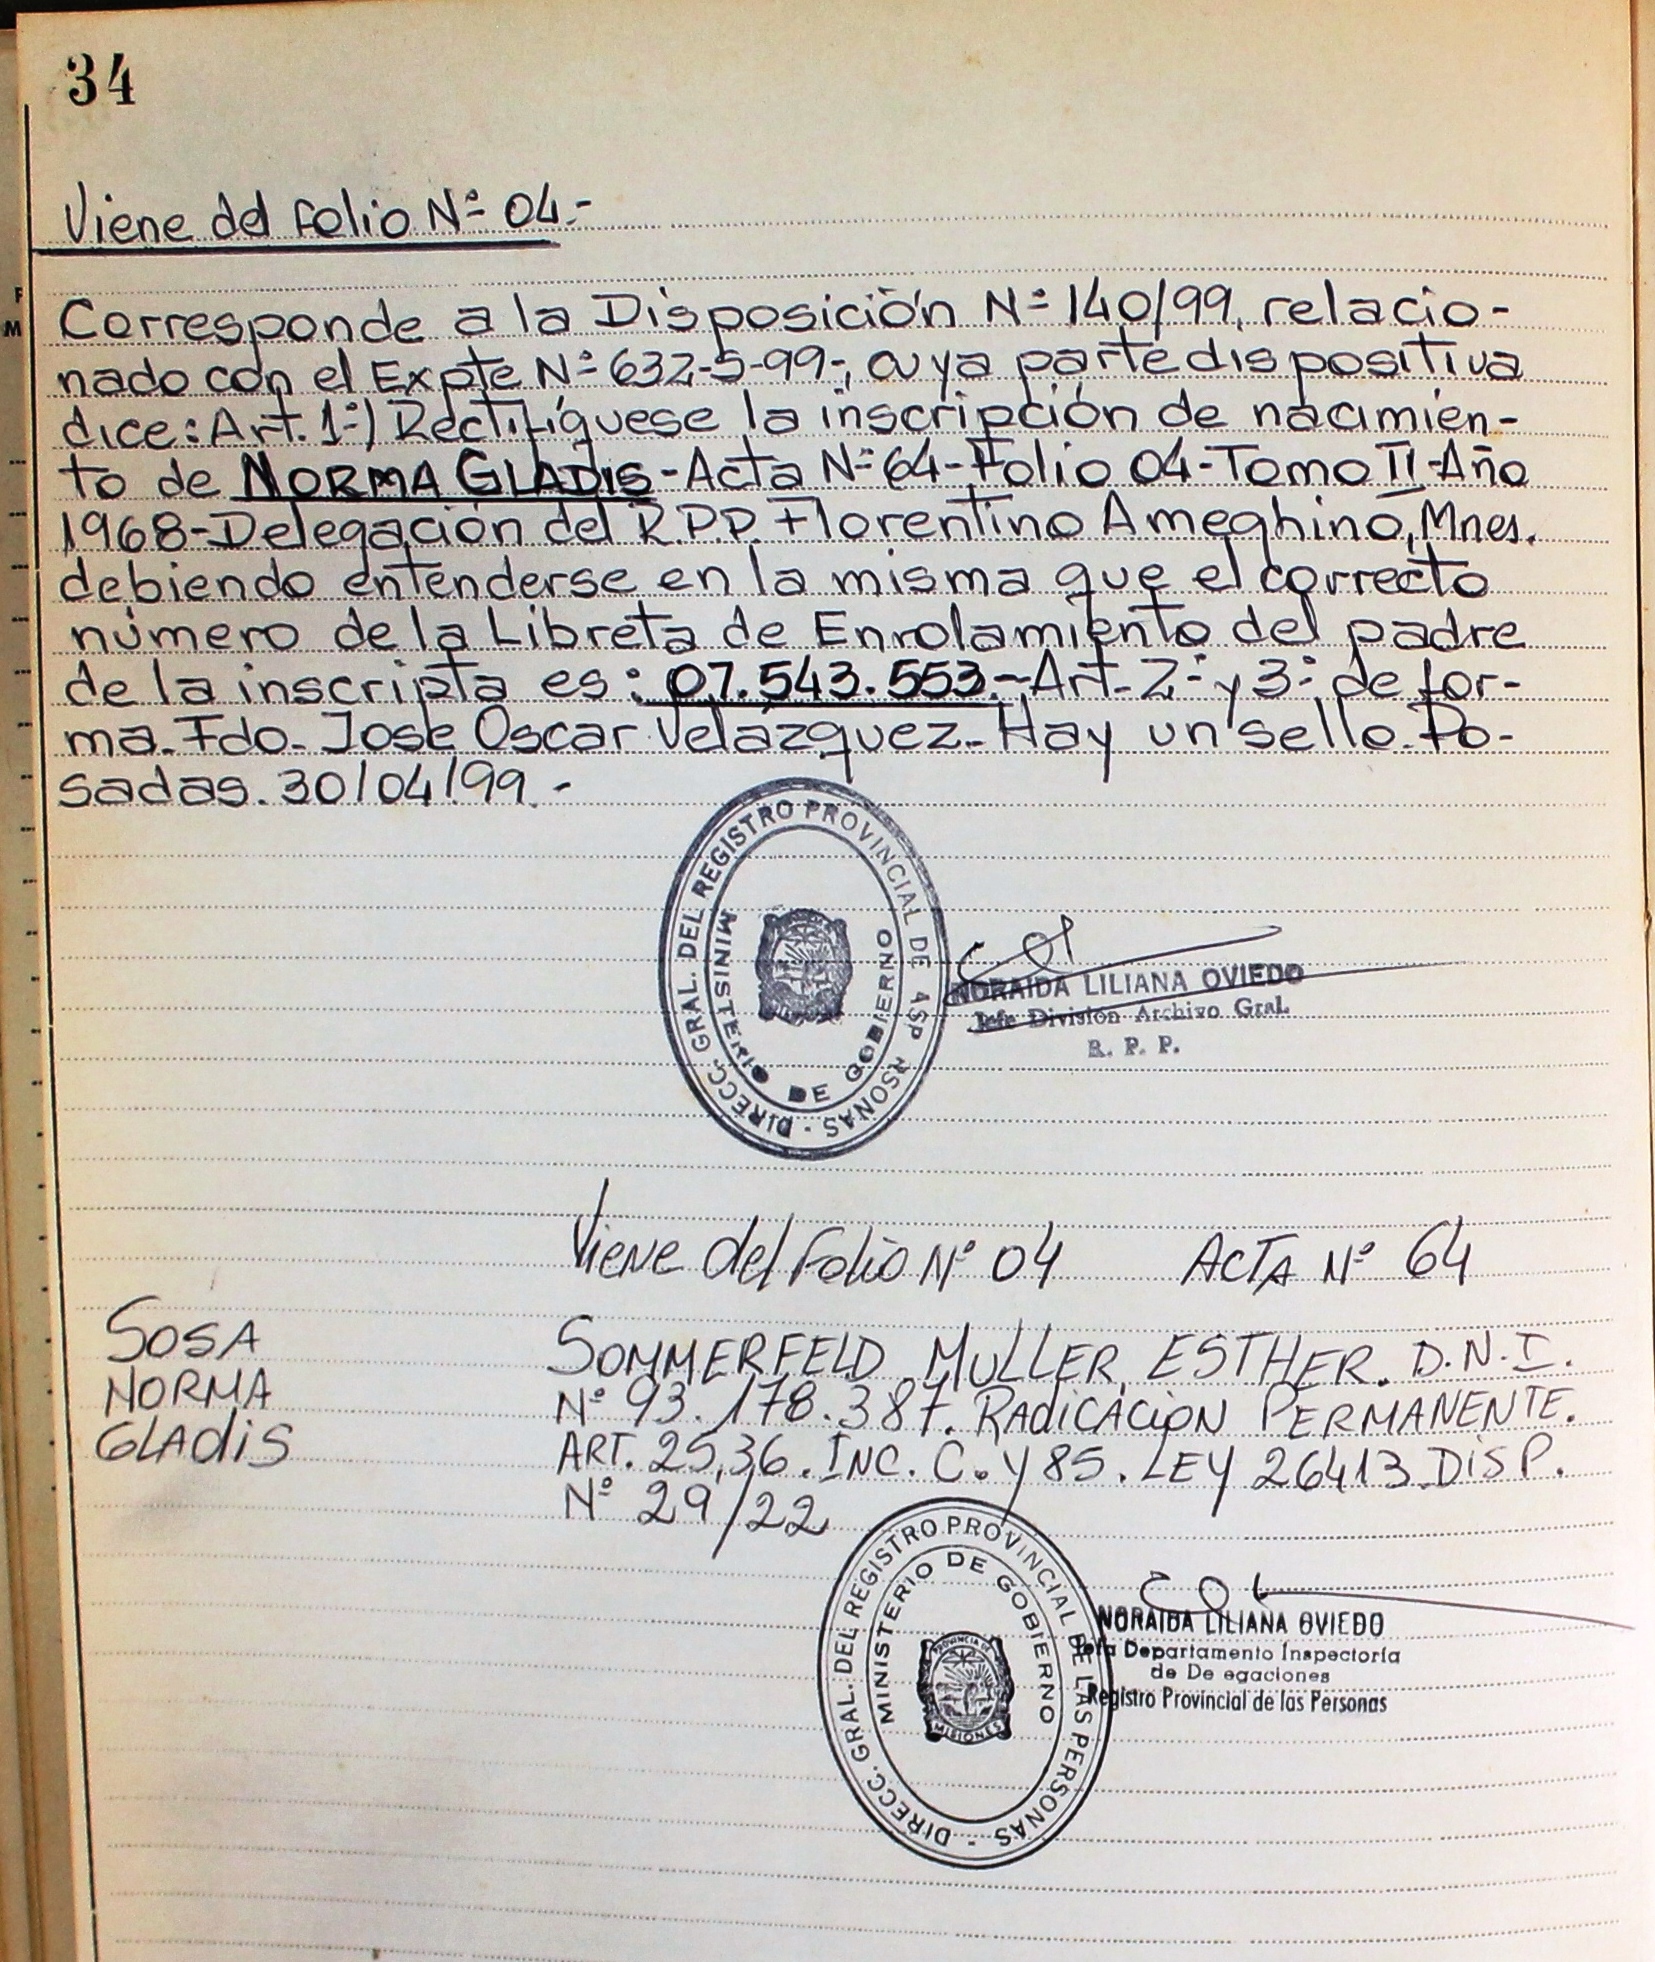 34
Viene del folio Nº 04.-
Corresponde a la Disposición Nº 140/99, relacio-
nado con el Expte Nº 632-S-99-, cuya parte dispositiva
dice: Art. 1º) Rectifíquese la inscripción de nacimien-
to de NORMA GLADIS - Acta Nº 64 - Folio 04 - Tomo II - Año
1968 - Delegación del R.P.P. Florentino Ameghino, Mnes.
debiendo entenderse en la misma que el correcto
número de la Libreta de Enrolamiento del padre
de la inscripta es: 07.543.553.- Art- 2º y 3º de for-
ma. Fdo. José Oscar Velázquez.- Hay un sello. Po-
sadas. 30/04/99.-
DIRECC. GRAL. DEL REGISTRO PROVINCIAL DE
MINISTERIO DE GOBIERNO
NORAIDA LILIANA OVIEDO
Jefe División Archivo Gral.
R. P. P.
Viene del Folio Nº 04 ACTA Nº 64
SOSA
NORMA
GLADIS
SOMMERFELD MULLER, ESTHER. D.N.I.
Nº 93.178.387. RADICACIÓN PERMANENTE.
ART. 25, 36. INC. C. Y 85. LEY 26413 DISP.
Nº 29/22
DIRECC. GRAL. DEL REGISTRO PROVINCIAL DE LAS PERSONAS -
MINISTERIO DE GOBIERNO
PROVINCIA DE
MISIONES
NORAIDA LILIANA OVIEDO
Jefa Departamento Inspectoría
de De egaciones
Registro Provincial de las Personas